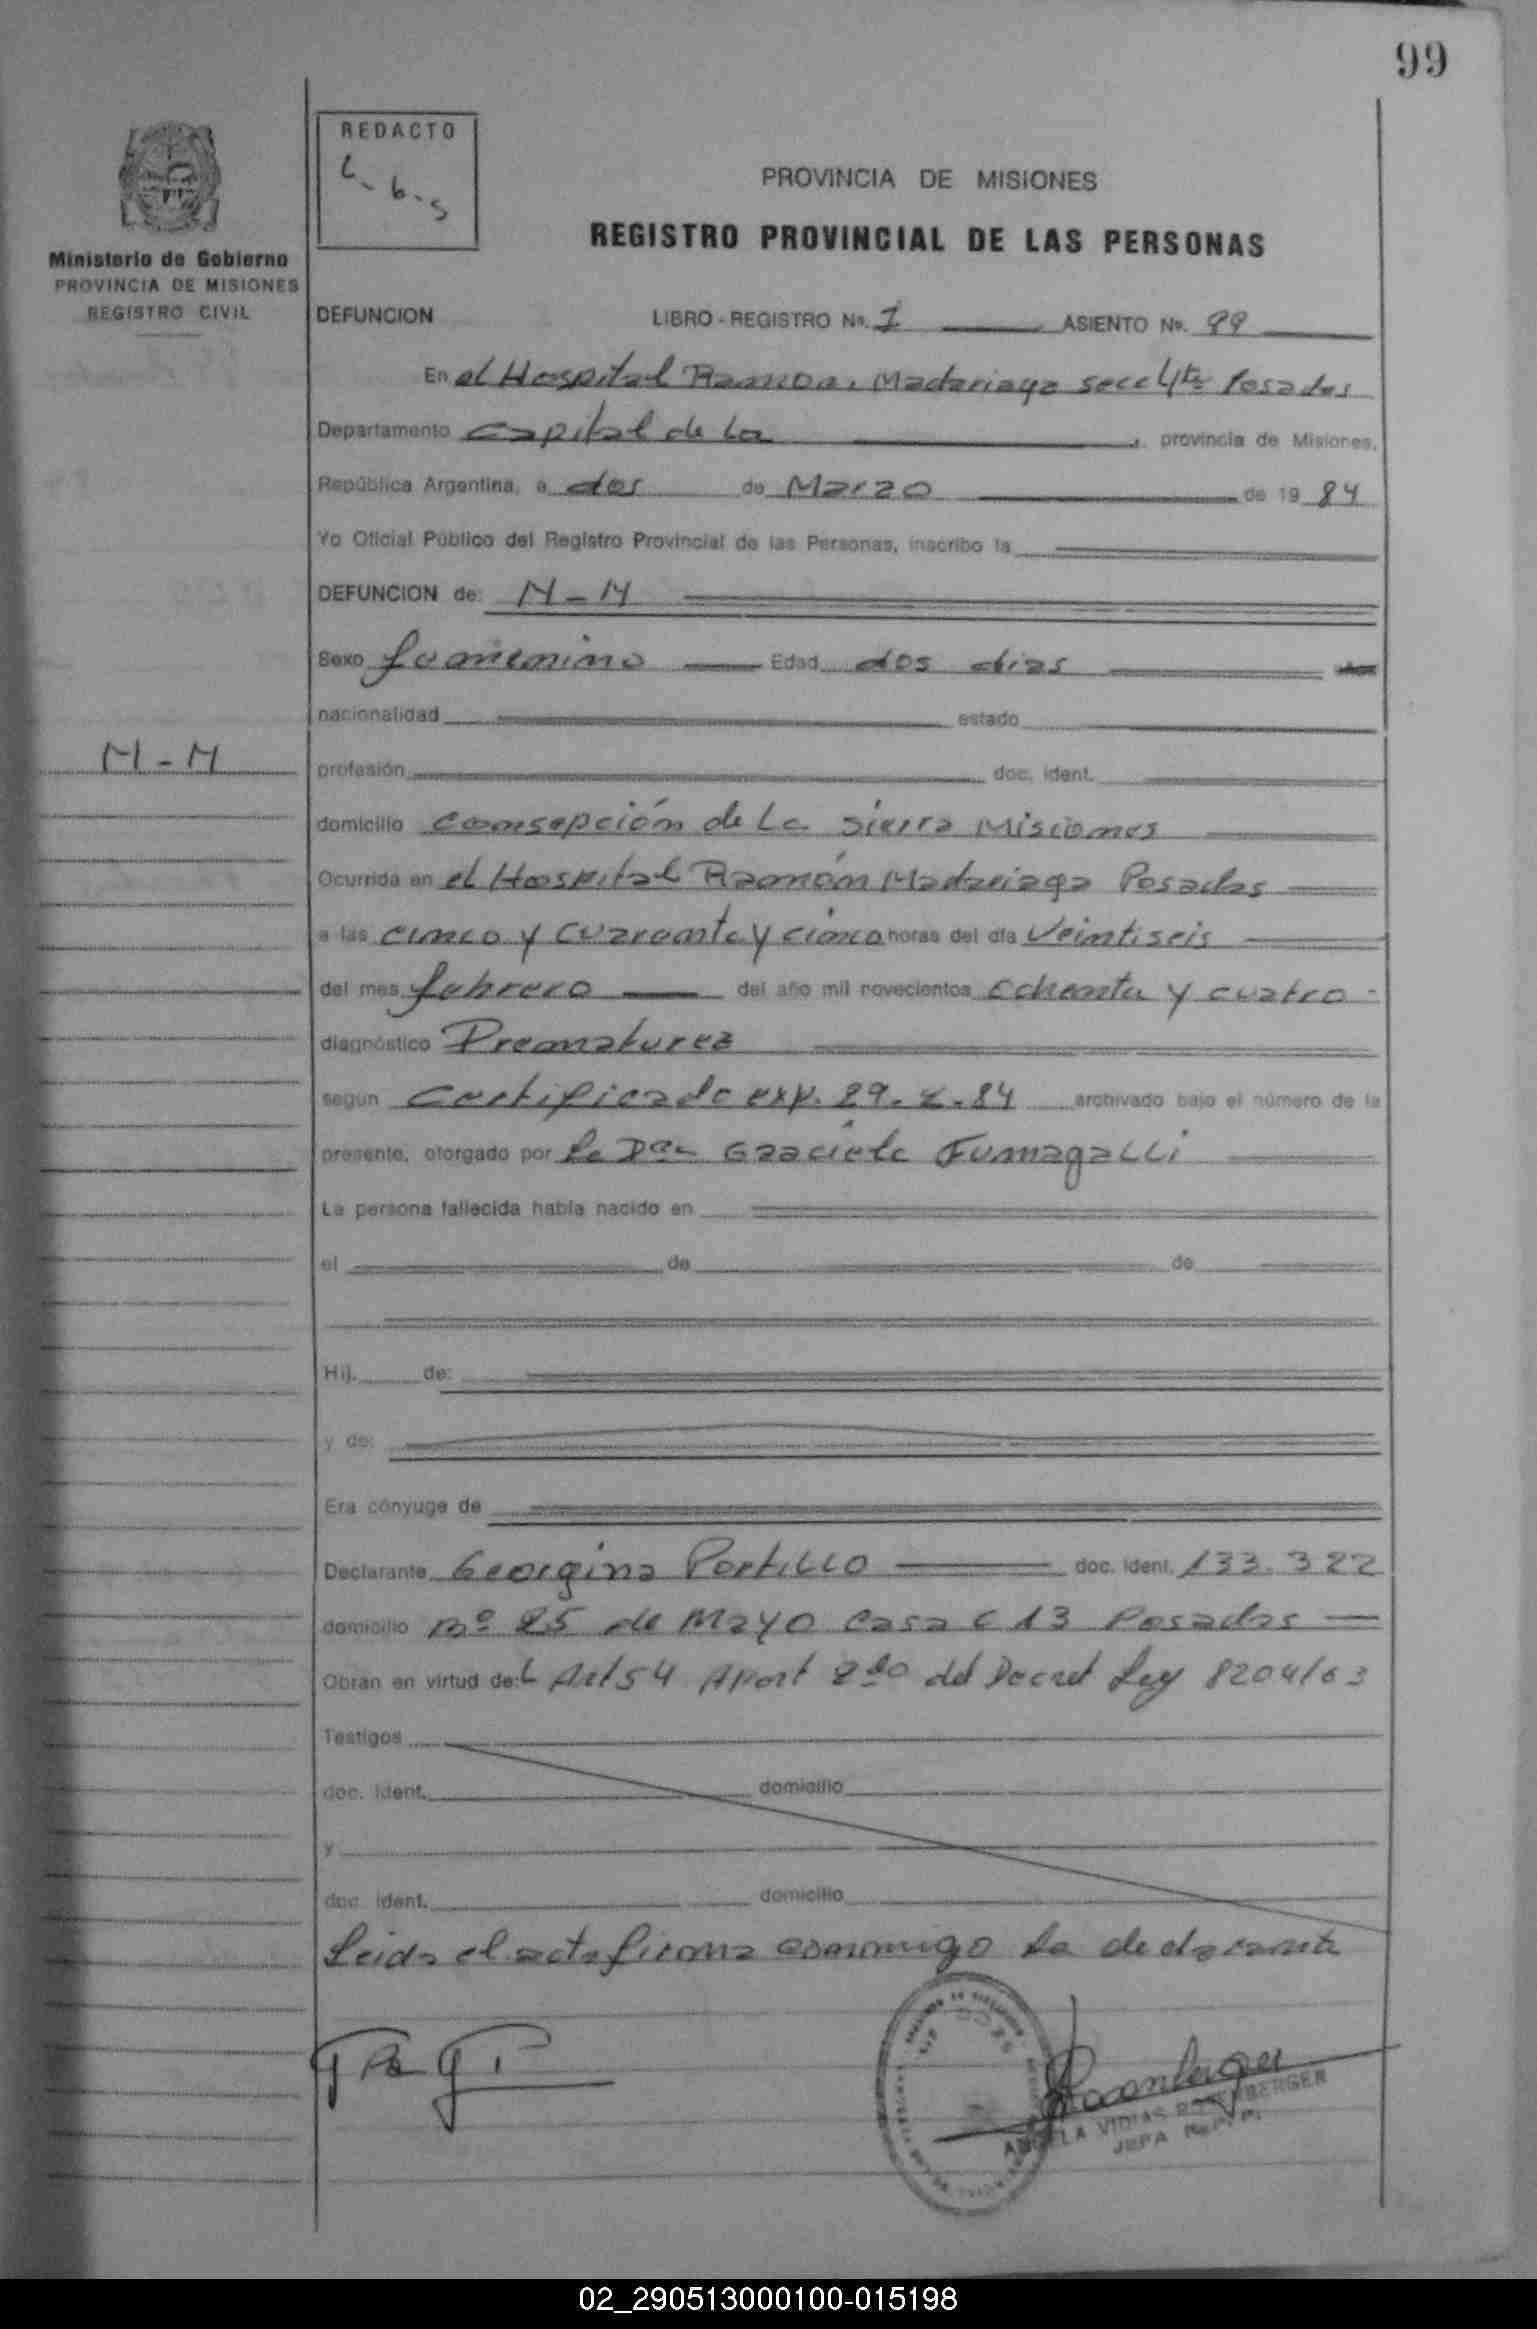 99
REDACTO
L-b-s
PROVINCIA DE MISIONES
REGISTRO PROVINCIAL DE LAS PERSONAS
Ministerio de Gobierno
PROVINCIA DE MISIONES
REGISTRO CIVIL
DEFUNCION LIBRO-REGISTRO Nº. 1 ASIENTO Nº. 99
En el Hospital Ramon. Madariaga secc 4ta Posadas
Departamento Capital de La , provincia de Misiones,
República Argentina, a dos de Marzo de 19 84
Yo Oficial Público del Registro Provincial de las Personas, inscribo la
DEFUNCION de: N-N
Sexo femenino Edad dos dias
nacionalidad estado
N-N
profesión doc. ident.
domicilio Consepción de La Sierra Misiones
Ocurrida en el Hospital Ramón Madariaga Posadas
a las cinco y cuarenta y cinco horas del día Veintiseis
del mes febrero del año mil novecientos ochenta y cuatro -
diagnóstico Prematurez
según Certificado exp. 29.2.84 archivado bajo el número de la
presente, otorgado por la Dra Graciela Fumagalli
La persona fallecida había nacido en
el de de
Hij. de:
y de:
Era cónyuge de
Declarante Georgina Portillo doc. ident. 133.322
domicilio Bº 25 de Mayo Casa C 13 Posadas
Obran en virtud de:L Art 54 Apart 2do del Decret Ley 8204/63
Testigos
doc. ident. domicilio
y
doc. ident. domicilio
Leida el acta firma conmigo la declarante
ANGELA VIDIAS ROSENBERGER
JEFA
02_290513000100-015198